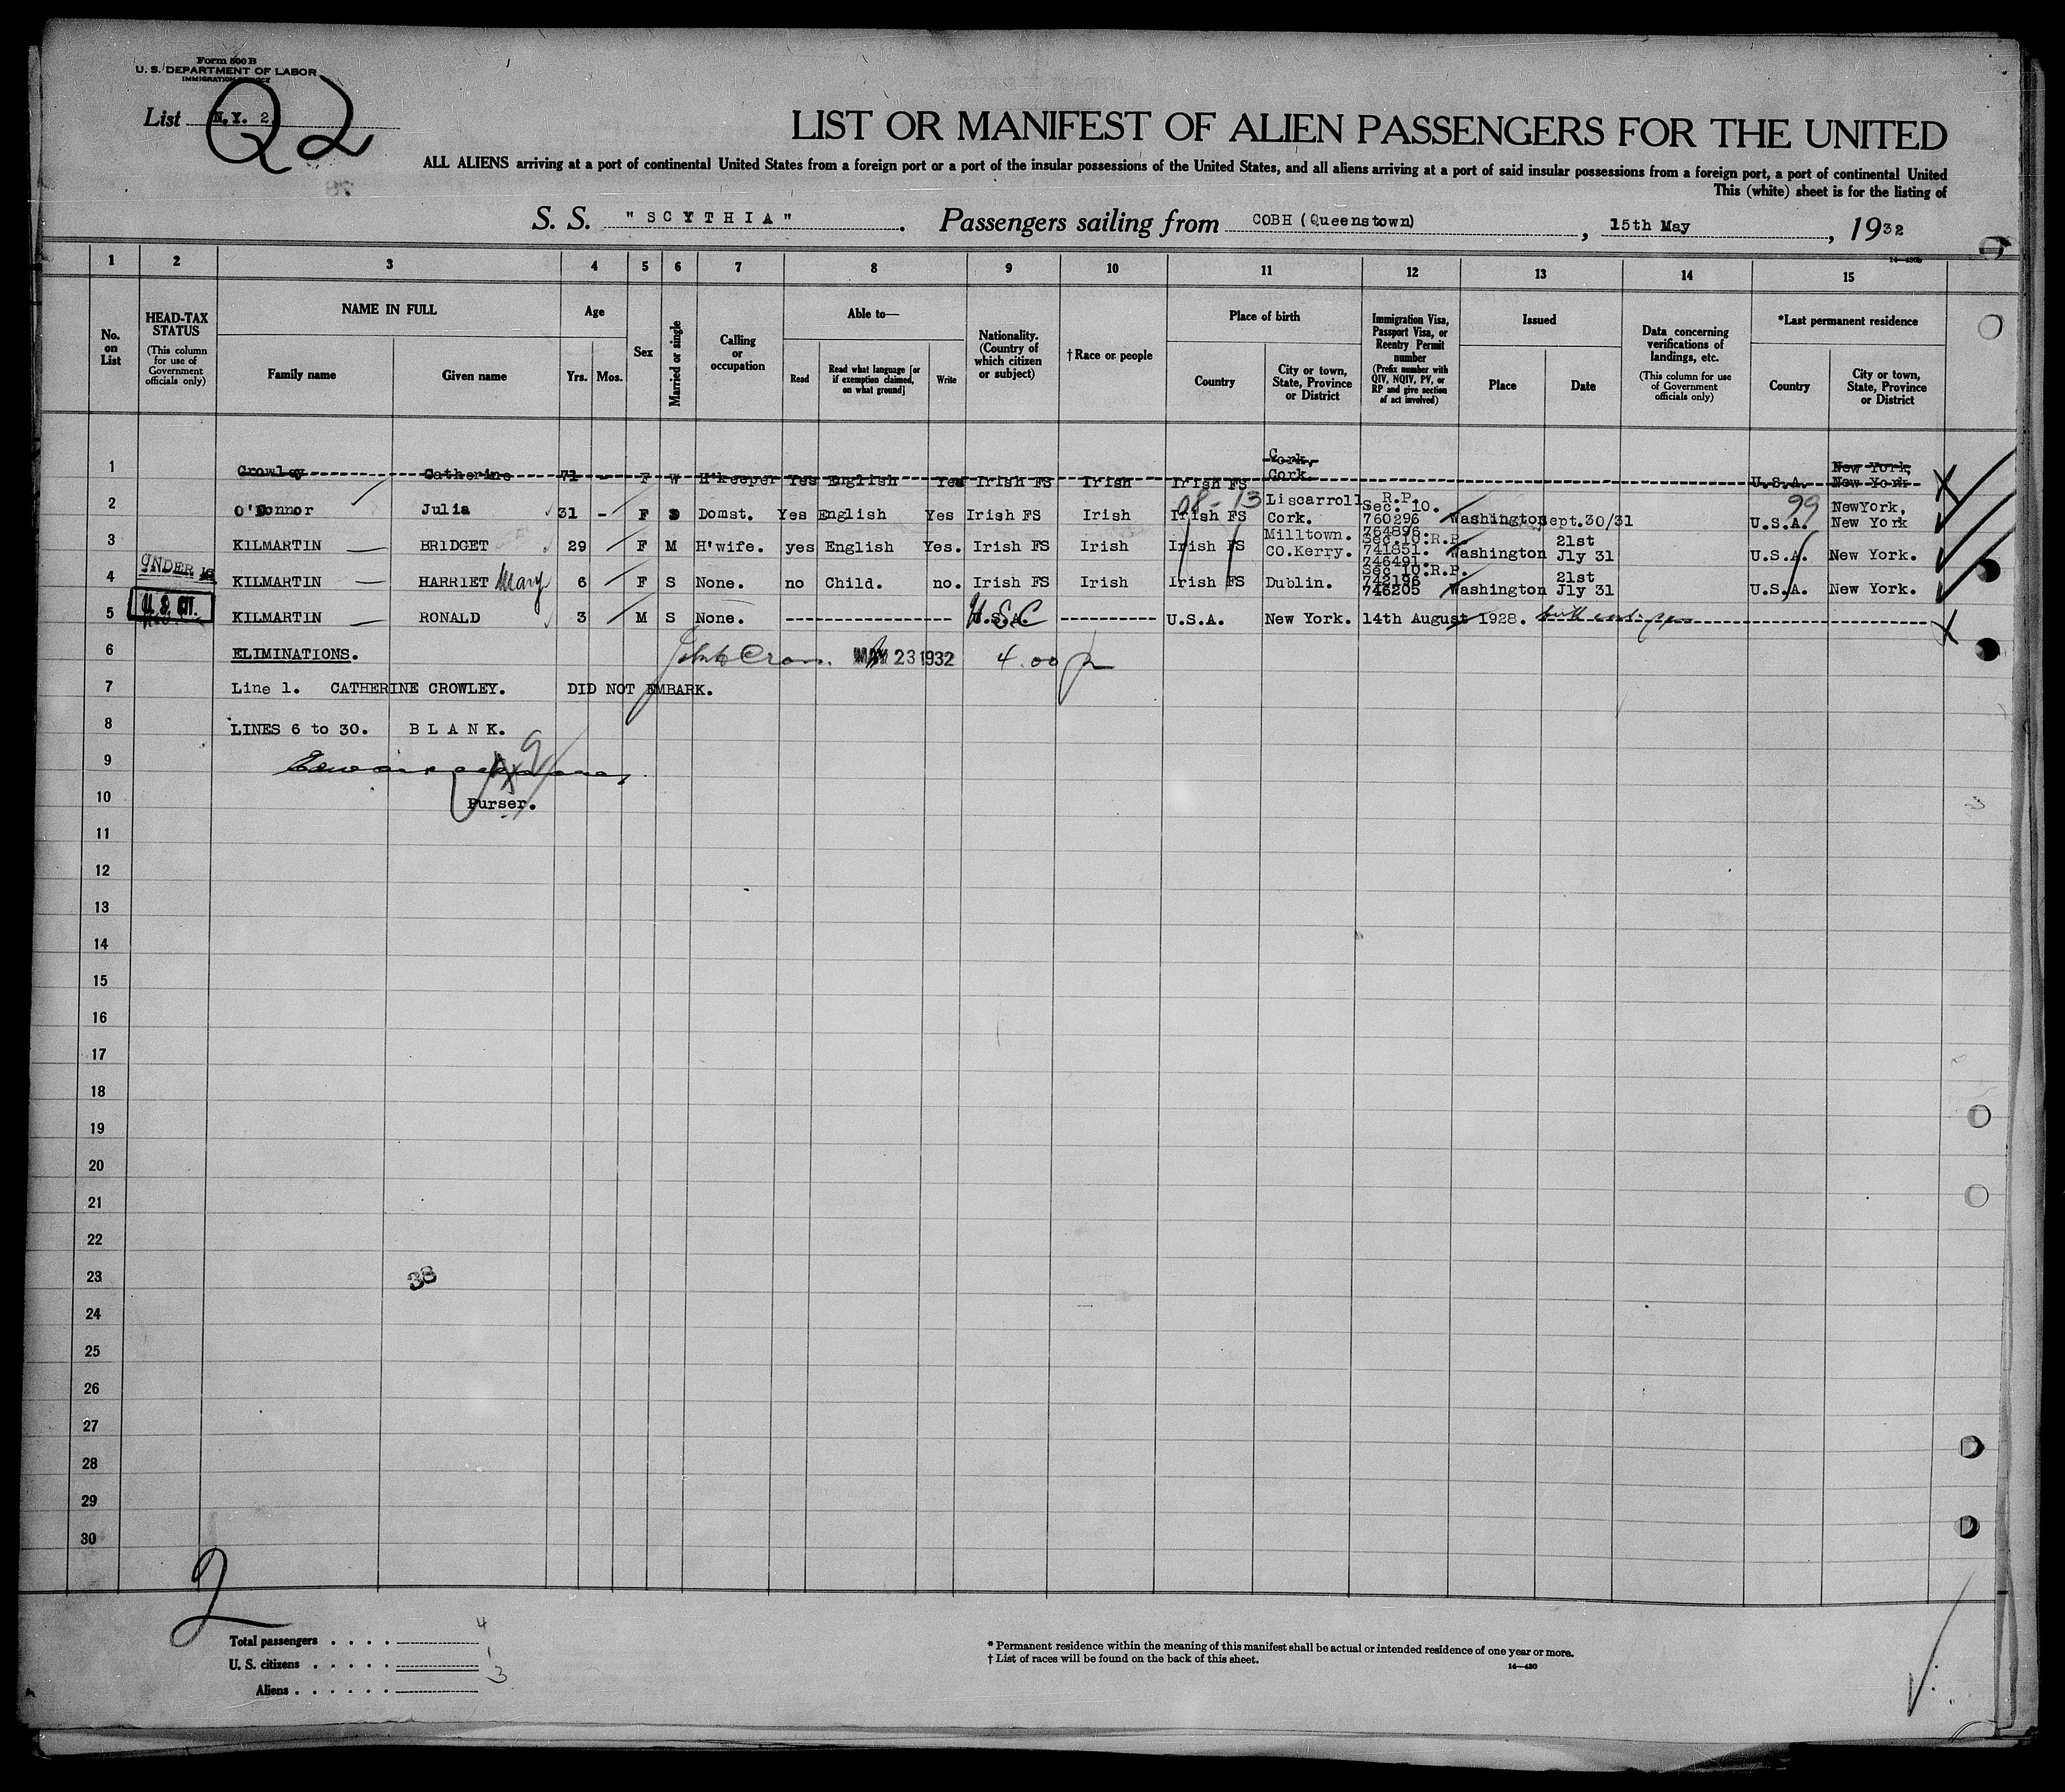 Form 500 B
U. S. DEPARTMENT OF LABOR
IMMIGRATION SERVICE
List N.Y. 2.
Q2
LIST OR MANIFEST OF ALIEN PASSENGERS FOR THE UNITED
ALL ALIENS arriving at a port of continental United States from a foreign port or a port of the insular possessions of the United States, and all aliens arriving at a port of said insular possessions from a foreign port, a port of continental United
This (white) sheet is for the listing of
S. S. "SCYTHIA". Passengers sailing from COBH (Queenstown), 15th May, 1932
1 2 3 4 5 6 7 8 9 10 11 12 13 14 15
No. on List
HEAD-TAX STATUS
(This column for use of Government officials only)
NAME IN FULL
Family name Given name
Age
Yrs. Mos.
Sex
Married or single
Calling or occupation
Able to—
Read
Read what language [or if exemption claimed, on what ground]
Write
Nationality. (Country of which citizen or subject)
†Race or people
Place of birth
Country
City or town, State, Province or District
Immigration Visa, Passport Visa, or Reentry Permit number
(Prefix number with QIV, NQIV, PV, or RP and give section of act involved)
Issued
Place Date
Data concerning verifications of landings, etc.
(This column for use of Government officials only)
*Last permanent residence
Country
City or town, State, Province or District
1 Crowley Catherine 71 - F W H'keeper Yes English Yes Irish FS Irish Irish FS Cork, Cork. U.S.A. New York, New York
08-13 99
2 O'Connor Julia 31 - F S Domst. Yes English Yes Irish FS Irish Irish FS Liscarroll Cork. R.P. Sec. 10. 760296 Washington Sept.30/31 U.S.A. NewYork, New York
3 KILMARTIN BRIDGET 29 F M H'wife. yes English Yes. Irish FS Irish Irish FS Milltown. CO.Kerry. 764896. Sec.10.R.P. 741851. Washington 21st Jly 31 U.S.A. New York.
UNDER 16
4 KILMARTIN HARRIET Mary 6 F S None. no Child. no. Irish FS Irish Irish FS Dublin. 746491. Sec 10.R.P. 742196 746205 Washington 21st Jly 31 U.S.A. New York.
U.S. CIT.
5 KILMARTIN RONALD 3 M S None. U.S.C U.S.A. New York. 14th August 1928.
6 ELIMINATIONS. MAY 23 1932 4.00 p
7 Line 1. CATHERINE CROWLEY. DID NOT EMBARK.
8 LINES 6 to 30. BLANK.
9
10 Purser.
11
12
13
14
15
16
17
18
19
20
21
22
23 38
24
25
26
27
28
29
30
2
Total passengers . . . . 4
U. S. citizens . . . . . 1
Aliens . . . . . . 3
* Permanent residence within the meaning of this manifest shall be actual or intended residence of one year or more.
† List of races will be found on the back of this sheet.
14—430